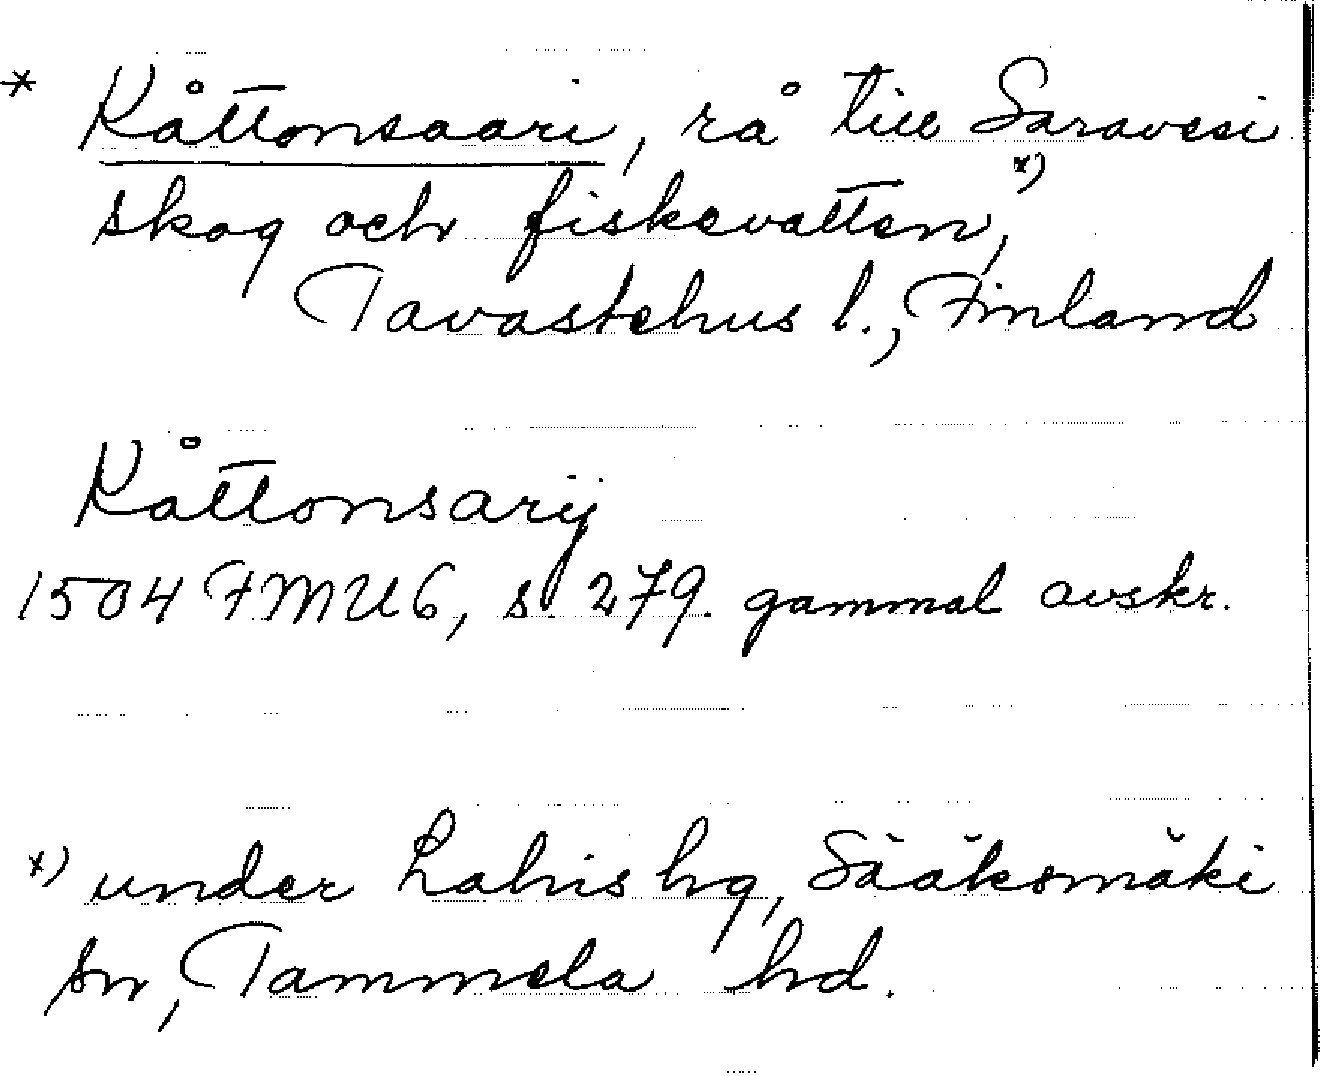 * Kåttonsaari, rå till Saravesi
skog och fiskevatten, x)
Tavastehus l., Finland
Kåttonsarij
1504 FMU 6, s 279. gammal avskr.
x) under Lahis hg, Sääksmäki
sn, Tammela hd.